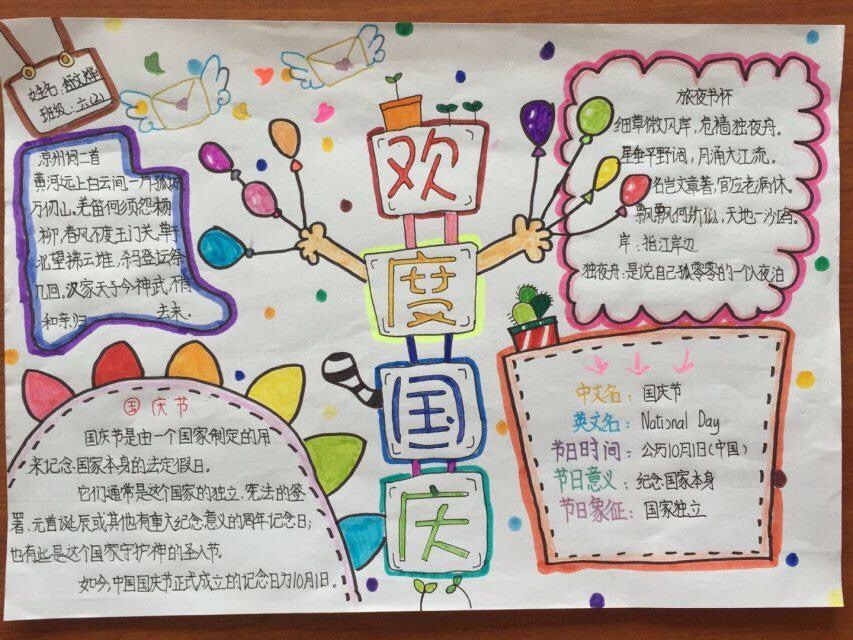 姓名:舒文烨
班级:六(2)
凉州词二首
黄河远上白云间一片孤城
万仞山。羌笛何须怨杨
柳,春风不度玉门关。单于
北望拂云堆,杀马登坛祭
几回。汉家天子今神武,不肯
和亲归去来。
欢
度
国
庆
旅夜书怀
细草微风岸,危樯独夜舟。
星垂平野阔,月涌大江流。
名岂文章著,官应老病休。
飘飘何所似,天地一沙鸥。
岸:指江岸边
独夜舟:是说自己孤零零的一个人夜泊
国庆节
国庆节是由一个国家制定的用
来纪念国家本身的法定假日。
它们通常是这个国家的独立、宪法的签
署、元首诞辰或其他有重大纪念意义的周年纪念日;
也有些是这个国家守护神的圣人节。
如今,中国国庆节正式成立的纪念日为10月1日。
中文名:国庆节
英文名:National Day
节日时间:公历10月1日(中国)
节日意义:纪念国家本身
节日象征:国家独立